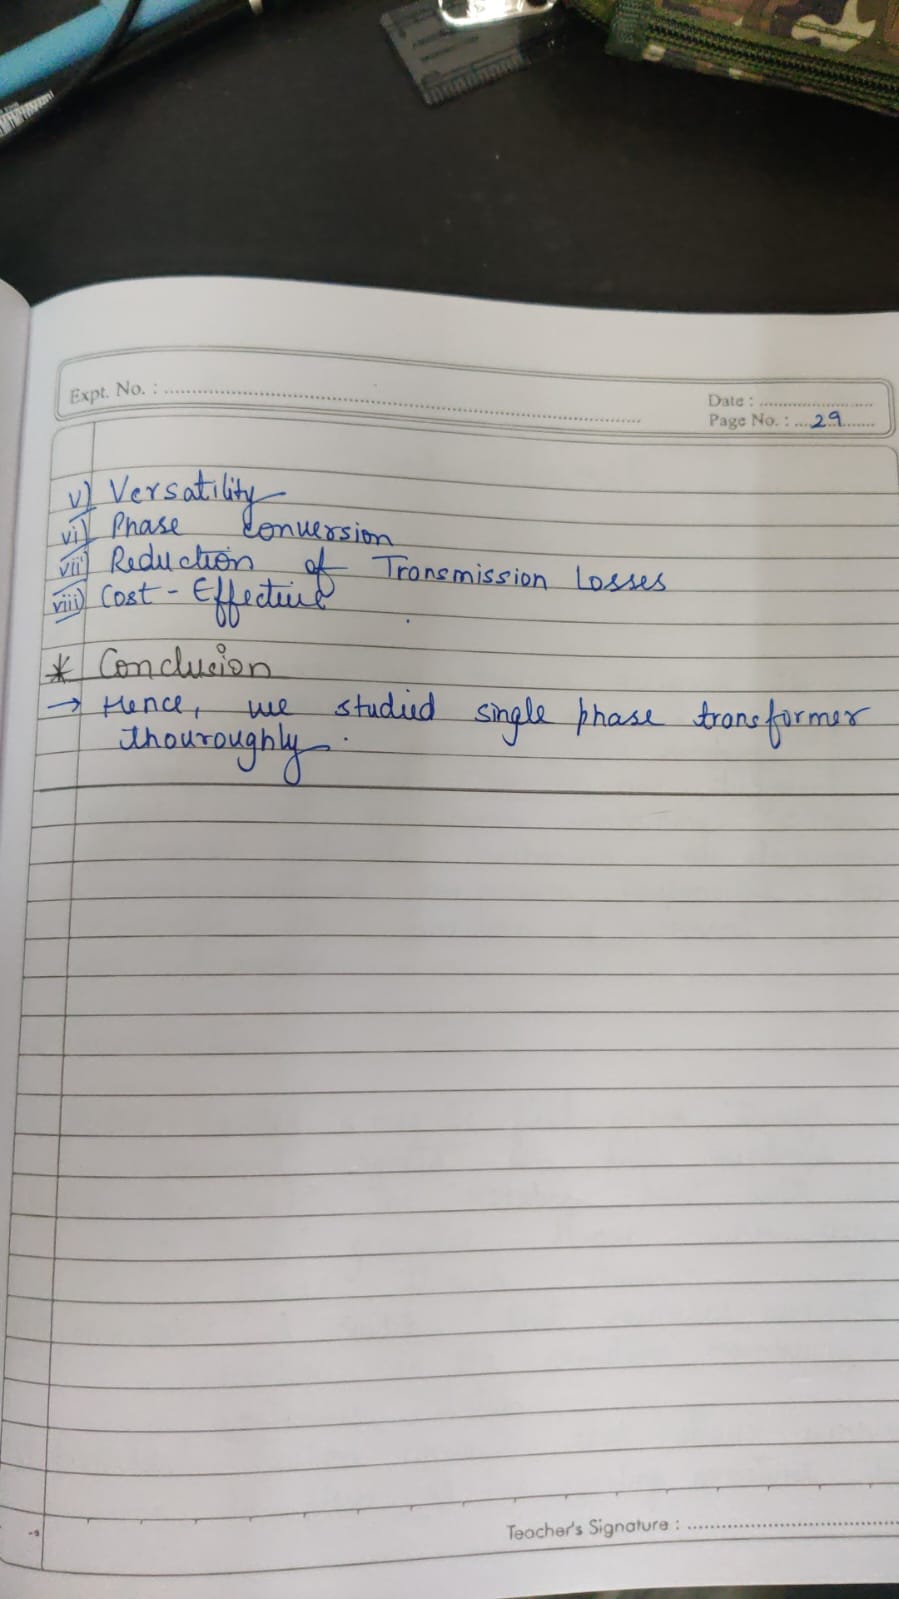 Expt. No. :
Date :
Page No. : 29
v) Versatility
vi) Phase Conversion
vii) Reduction of Transmission Losses
viii) Cost - Effective
* Conclusion
→ Hence, we studied single phase transformer
thouroughly.
Teacher's Signature :